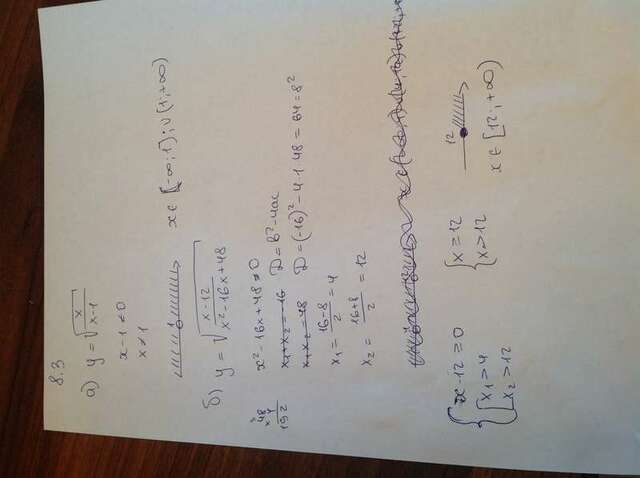 8.3
а) y = √(x/(x-1))
x-1≠0
x≠1
x∈[-∞;1);∪(1;+∞)
б) y = √((x-12)/(x²-16x+48))
x²-16x+48≠0
x₁+x₂=-16 D=b²-4ac
x₁+x₂=48 D=(-16)²-4·1·48=64=8²
x₁=(16-8)/2=4
x₂=(16+8)/2=12
48
×4
192
{x-12≥0 {x≥12 12
[x₁>4 {x>12 x∈[12;+∞)
[x₂>12